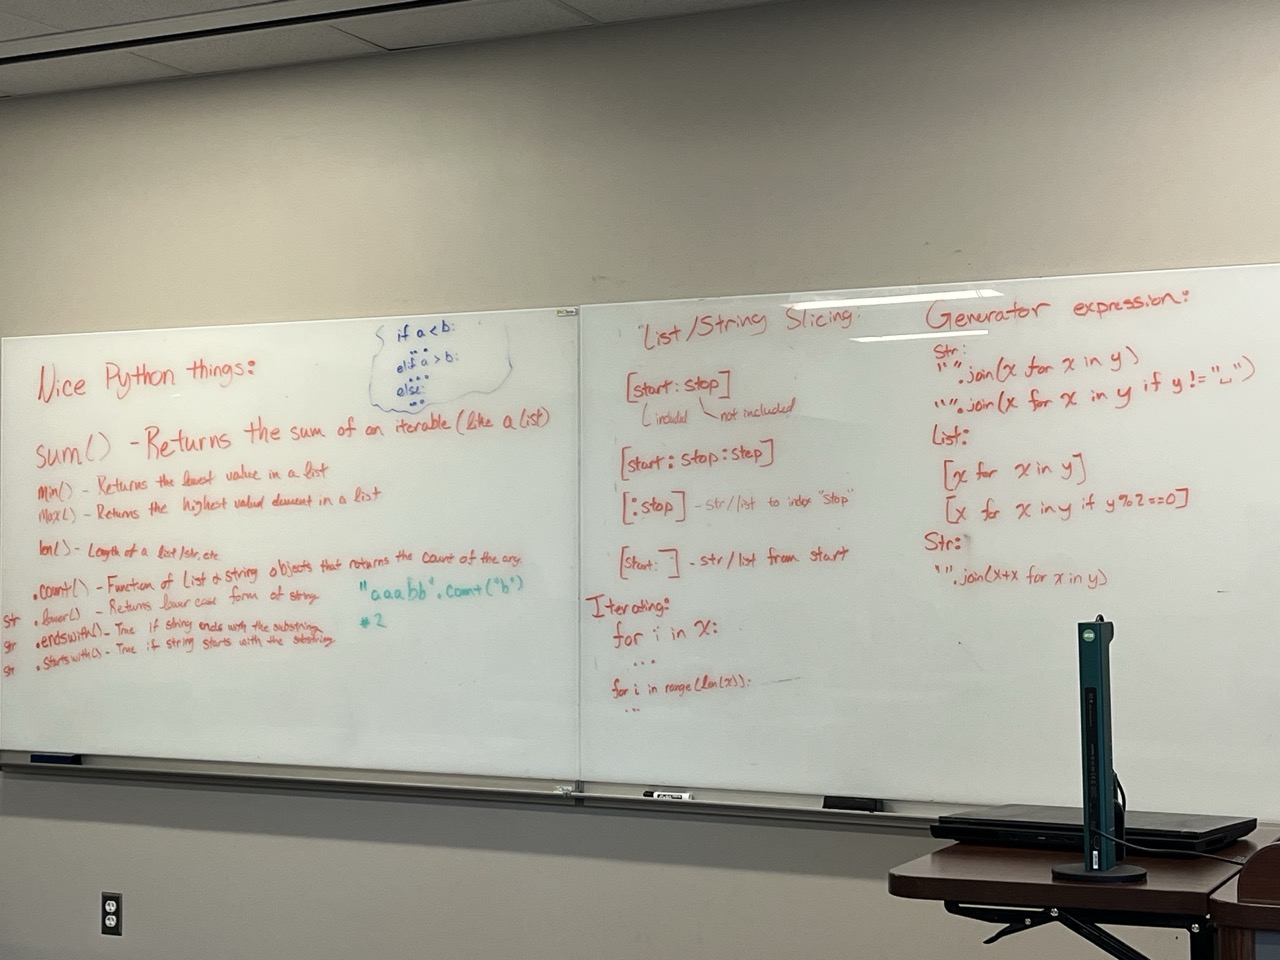 Nice Python things:
if a < b:
...
elif a > b:
...
else:
...
sum() - Returns the sum of an iterable (like a list)
min() - Returns the lowest value in a list
Max() - Returns the highest valued element in a list
len() - Length of a list/str, etc
.count() - Function of List & string objects that returns the count of the arg.
str .lower() - Returns lower case form of string
str .endswith() - True if string ends with the substring
str .startswith() - True if string starts with the substring
"aaabb".count("b")
#2
List/String Slicing.
[start:stop]
included not included
[start:stop:step]
[:stop] - str/list to index "stop"
[start:] - str/list from start
Iterating:
for i in x:
...
for i in range(len(x)):
...
Generator expression:
Str:
"".join(x for x in y)
"".join(x for x in y if y != "␣")
List:
[x for x in y]
[x for x in y if y%2==0]
Str:
"".join(x+x for x in y)